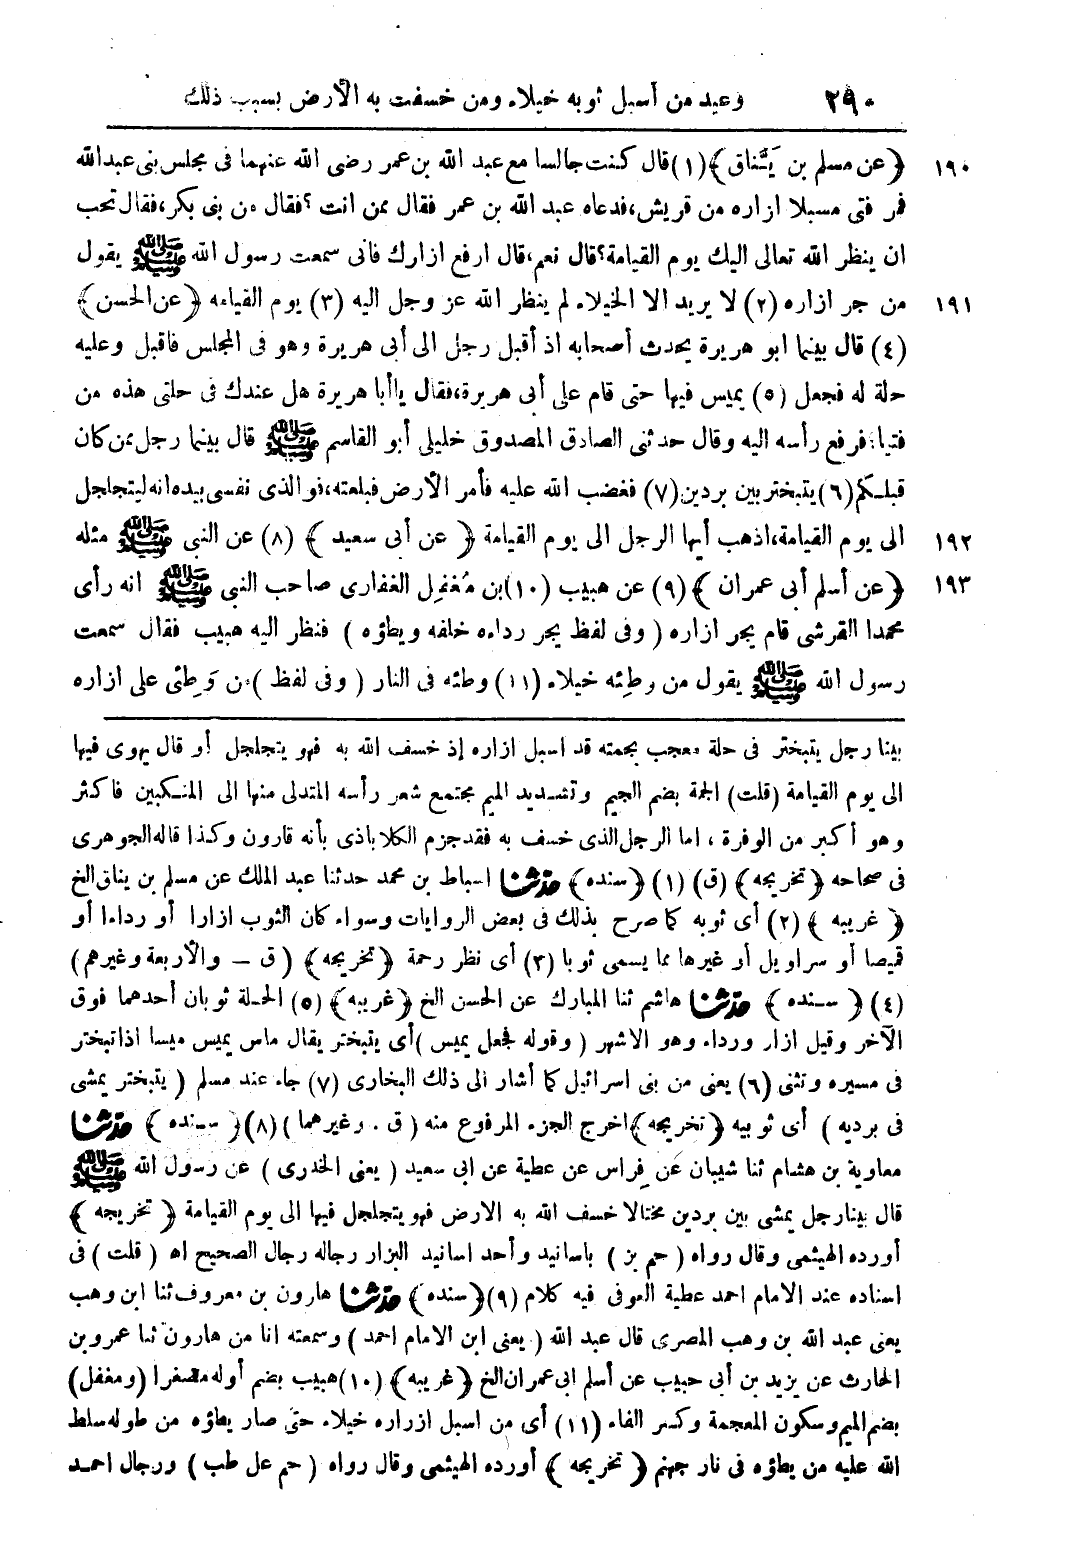 ٢٩٠ وعيد من أسبل ثوبه خيلاء ومن خسفت به الأرض بسبب ذلك
١٩٠ ﴿عن مسلم بن يَنَّاق﴾(١)قال كنت جالسا مع عبد الله بن عمر رضى الله عنهما فى مجلس بنى عبدالله
فمر فتى مسبلا ازاره من قريش،فدعاه عبد الله بن عمر فقال ممن انت ؟فقال من بنى بكر،فقال تحب
ان ينظر الله تعالى اليك يوم القيامة؟قال نعم،قال ارفع ازارك فانى سمعت رسول الله ﷺ يقول
١٩١ من جر ازاره (٢) لا يريد الا الخيلاء لم ينظر الله عز وجل اليه (٣) يوم القيامه ﴿عن الحسن﴾
(٤) قال بينما ابو هريرة يحدث أصحابه اذ أقبل رجل الى أبى هريرة وهو فى المجلس فاقبل وعليه
حلة له فجعل (٥) يميس فيها حتى قام على أبى هريرة،فقال ياأبا هريرة هل عندك فى حلتى هذه من
فتيا؟فرفع رأسه اليه وقال حدثنى الصادق المصدوق خليلى أبو القاسم ﷺ قال بينما رجل ممن كان
قبلكم(٦)يتبختر بين بردين(٧) فغضب الله عليه فأمر الأرض فبلعته،فو الذى نفسى بيده انه ليتجلجل
١٩٢ الى يوم القيامة،اذهب أيها الرجل الى يوم القيامة ﴿عن أبى سعيد﴾ (٨) عن النبى ﷺ مثله
١٩٣ ﴿عن أسلم أبى عمران﴾ (٩) عن هبيب (١٠)بن مُغفِل الغفارى صاحب النبى ﷺ انه رأى
محمدا القرشى قام يجر ازاره (وفى لفظ يجر رداءه خلفه ويطؤه) فنظر اليه هبيب فقال سمعت
رسول الله ﷺ يقول من وطِئه خيلاء (١١) وطئه فى النار (وفى لفظ)من وَطِئى على ازاره
بينا رجل يتبختر فى حلة معجب بجمته قد اسبل ازاره إذ خسف الله به فهو يتجلجل أو قال يهوى فيها
الى يوم القيامة (قلت) الجمة بضم الجيم وتشديد الميم مجتمع شعر رأسه المتدلى منها الى المنكبين فاكثر
وهو أكبر من الوفرة ، اما الرجل الذى خسف به فقد جزم الكلاباذى بأنه قارون وكذا قاله الجوهرى
فى صحاحه ﴿تخريجه﴾ (ق) (١) ﴿سنده﴾ حدثنا اسباط بن محمد حدثنا عبد الملك عن مسلم بن يناق الخ
﴿غريبه﴾ (٢) أى ثوبه كما صرح بذلك فى بعض الروايات وسواء كان الثوب ازارا أو رداءا أو
قميصا أو سراويل أو غيرها مما يسمى ثوبا (٣) أى نظر رحمة ﴿تخريجه﴾ (ق – والأربعة وغيرهم)
(٤) ﴿سنده﴾ حدثنا هاشم ثنا المبارك عن الحسن الخ ﴿غريبه﴾ (٥) الحلة ثوبان أحدهما فوق
الآخر وقيل ازار ورداء وهو الاشهر (وقوله فجعل يميس)أى يتبختر يقال ماس يميس ميسا اذا تبختر
فى مسيره وتثنى (٦) يعنى من بنى اسرائيل كما أشار الى ذلك البخارى (٧) جاء عند مسلم (يتبختر يمشى
فى برديه) أى ثوبيه ﴿تخريجه﴾اخرج الجزء المرفوع منه (ق . وغيرهما)(٨)﴿سنده﴾ حدثنا
معاوية بن هشام ثنا شيبان عن فِراس عن عطية عن ابى سعيد (يعنى الخدرى) عن رسول الله ﷺ
قال بينا رجل يمشى بين بردين مختالا خسف الله به الارض فهو يتجلجل فيها الى يوم القيامة ﴿تخريجه﴾
أورده الهيثمى وقال رواه (حم بز) باسانيد وأحد اسانيد البزار رجاله رجال الصحيح اه (قلت) فى
اسناده عند الامام احمد عطية العوفى فيه كلام (٩)﴿سنده﴾ حدثنا هارون بن معروف ثنا ابن وهب
يعنى عبد الله بن وهب المصرى قال عبد الله (يعنى ابن الامام احمد) وسمعته انا من هارون ثنا عمرو بن
الحارث عن يزيد بن أبى حبيب عن أسلم ابى عمران الخ ﴿غريبه﴾ (١٠)هبيب بضم أوله مصغرا (ومغفل)
بضم الميم وسكون المعجمة وكسر الفاء (١١) أى من اسبل ازراره خيلاء حتى صار يطؤه من طوله سلط
الله عليه من يطؤه فى نار جهنم ﴿تخريجه﴾ أورده الهيثمى وقال رواه (حم عل طب) ورجال احمد